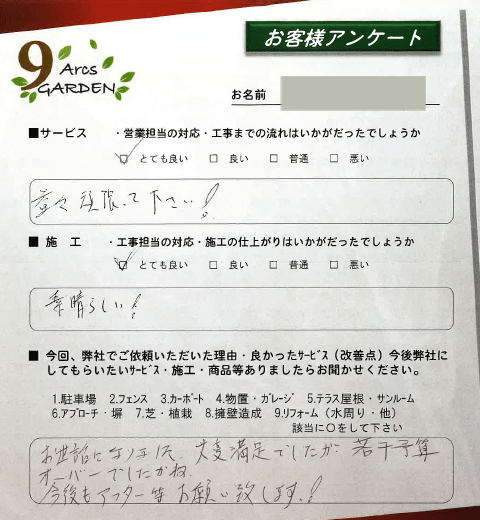 お客様アンケート
9 Arcs GARDEN
お名前
■サービス ・営業担当の対応・工事までの流れはいかがだったでしょうか
☑ とても良い □ 良い □ 普通 □ 悪い
益々頑張って下さい!
■ 施 工 ・工事担当の対応・施工の仕上がりはいかがだったでしょうか
☑ とても良い □ 良い □ 普通 □ 悪い
素晴らしい!
■ 今回、弊社でご依頼いただいた理由・良かったサービス(改善点)今後弊社に
してもらいたいサービス・施工・商品等ありましたらお聞かせください。
1.駐車場 2.フェンス 3.カーポート 4.物置・ガレージ 5.テラス屋根・サンルーム
6.アプローチ・塀 7.芝・植栽 8.擁壁造成 9.リフォーム(水周り・他)
該当に○をして下さい
お世話になりました。大変満足でしたが 若干予算
オーバーでしたかね
今後もアフター等お願い致します!